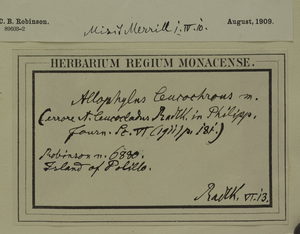 C. B. Robinson.
August, 1909.
89603—2
Misit Merrill j. IV. 10.
HERBARIUM REGIUM MONACENSE.
Allophylus leucochrous m.
(errore A. leucocladus Radlk. in Philipp.
Journ. Sc. VI (1911) p. 181.)
Robinson n. 6890.
Island of Polillo.
Radlk. VI. 13.